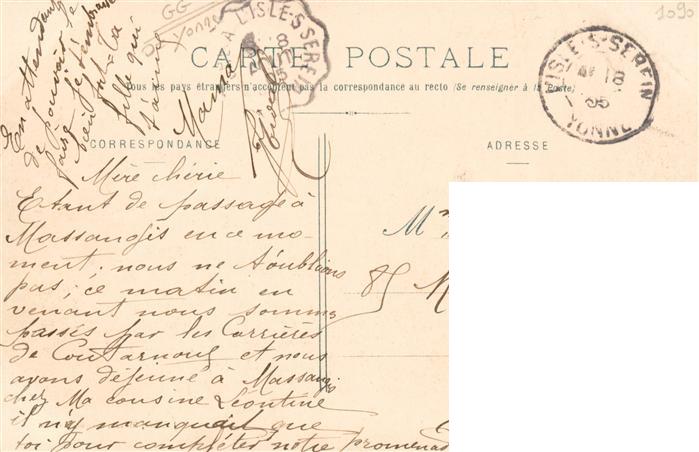 1090
GG
Yonne
A L'ISLE-S-SEREIN
CARTE POSTALE
Tous les pays étrangers n'acceptent pas la correspondance au recto (Se renseigner à la Poste)
L'ISLE-S-SEREIN
18
05
YONNE
CORRESPONDANCE
ADRESSE
Mère chérie
Etant de passage à
Massangis en ce mo-
ment; nous ne t'oublions
pas; ce matin en
venant nous somme
passés par les Carrières
de Coutarnoux et nous
avons déjeuné à Massangis
chez Ma cousine Léontine
il n'y manquait que
toi pour compléter notre promenad
En attendant
de pouvoir le
faire je t'embrasse
bien fort Ta
fille qui
t'aime
Maria
M
85 M